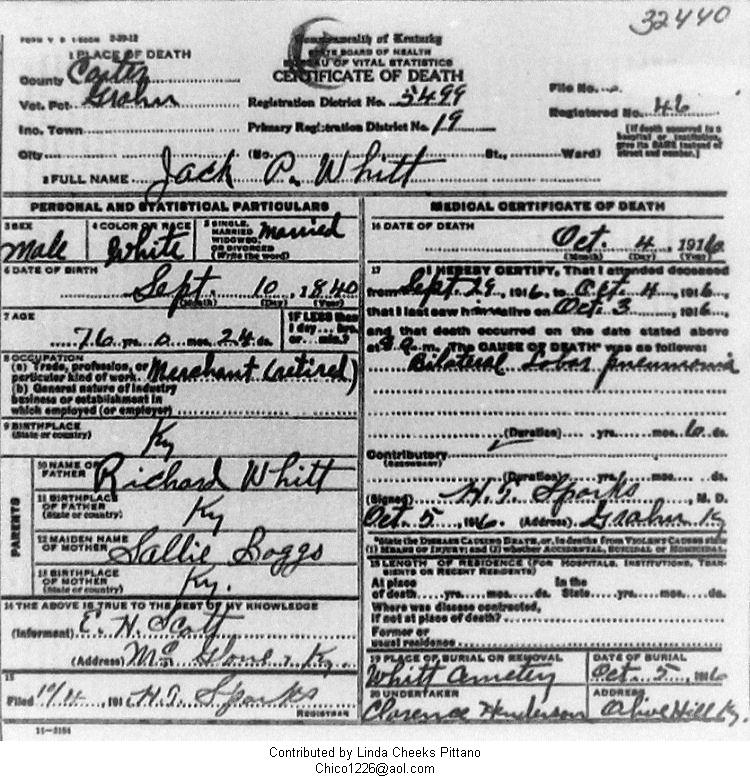 32440
FORM V S 1-500M 2-29-12
Commonwealth of Kentucky
STATE BOARD OF HEALTH
BUREAU OF VITAL STATISTICS
CERTIFICATE OF DEATH
1 PLACE OF DEATH
County Carter
Vot. Pct. Grahn
Inc. Town
City
Registration District No. 5499
Primary Registration District No. 19
(No. St., Ward)
File No.
Registered No. 46
[If death occurred in a hospital or institution, give its NAME instead of street and number.]
2 FULL NAME Jack P. Whitt
PERSONAL AND STATISTICAL PARTICULARS
3 SEX
Male
4 COLOR OR RACE
White
5 SINGLE, MARRIED, WIDOWED, OR DIVORCED (Write the word) Married
6 DATE OF BIRTH
Sept. 10, 1840
(Month) (Day) (Year)
7 AGE
76 yrs. 0 mos. 24 ds.
IF LESS than 1 day... hrs. or... min.?
8 OCCUPATION
(a) Trade, profession, or particular kind of work Merchant (retired)
(b) General nature of industry business or establishment in which employed (or employer)
9 BIRTHPLACE
(State or country) Ky
PARENTS
10 NAME OF FATHER Richard Whitt
11 BIRTHPLACE OF FATHER (State or country) Ky
12 MAIDEN NAME OF MOTHER Sallie Boggs
13 BIRTHPLACE OF MOTHER (State or country) Ky.
14 THE ABOVE IS TRUE TO THE BEST OF MY KNOWLEDGE
(Informant) E. H. Scott
(Address) Ky.
15
Filed 10/4 191 H. T. Sparks
REGISTRAR
11-3184
MEDICAL CERTIFICATE OF DEATH
16 DATE OF DEATH
Oct. 4, 1916
(Month) (Day) (Year)
17 I HEREBY CERTIFY, That I attended deceased
from Sept. 29, 1916, to Oct. 4, 1916,
that I last saw him alive on Oct. 3, 1916,
and that death occurred on the date stated above
at 3 a. m. The CAUSE OF DEATH* was as follows:
Bilateral Lobar pneumonia
(Duration) yrs. mos. 6 ds.
Contributory
(SECONDARY)
(Duration) yrs. mos. ds.
(Signed) H. T. Sparks, M. D.
Oct. 5, 1916 (Address) Grahn Ky
*State the DISEASE CAUSING DEATH, or, in deaths from VIOLENT CAUSES state (1) MEANS OF INJURY; and (2) whether ACCIDENTAL, SUICIDAL or HOMICIDAL.
18 LENGTH OF RESIDENCE (FOR HOSPITALS, INSTITUTIONS, TRANSIENTS OR RECENT RESIDENTS)
At place of death yrs. mos. ds. In the State yrs. mos. ds.
Where was disease contracted, if not at place of death?
Former or usual residence
19 PLACE OF BURIAL OR REMOVAL
Whitt Cemetery
DATE OF BURIAL
Oct. 5, 1916
20 UNDERTAKER
Clorence Henderson
ADDRESS
Olive Hill Ky.
Contributed by Linda Cheeks Pittano
Chico1226@aol.com